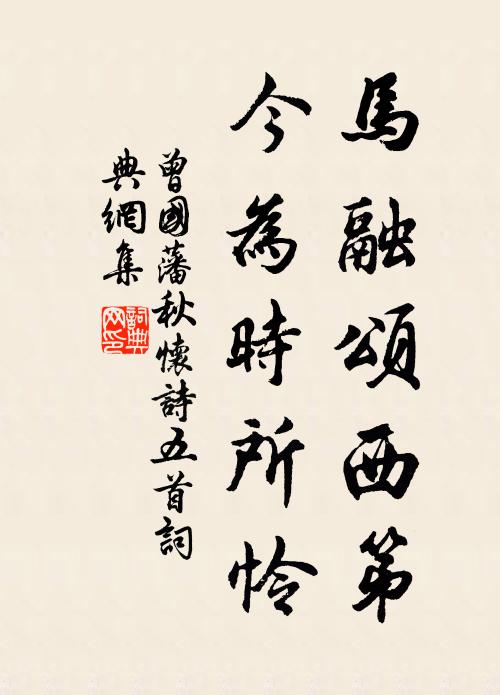 馬融頌西第
今為時所怜
曾國藩秋懷詩五首詞
典網集
詞典
网印